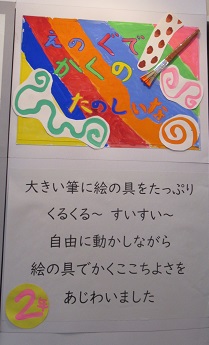 えのぐで
かくの
たのしいよ
大きい筆に絵の具をたっぷり
くるくる～ すいすい～
自由に動かしながら
絵の具でかくここちよさを
あじわいました
2年